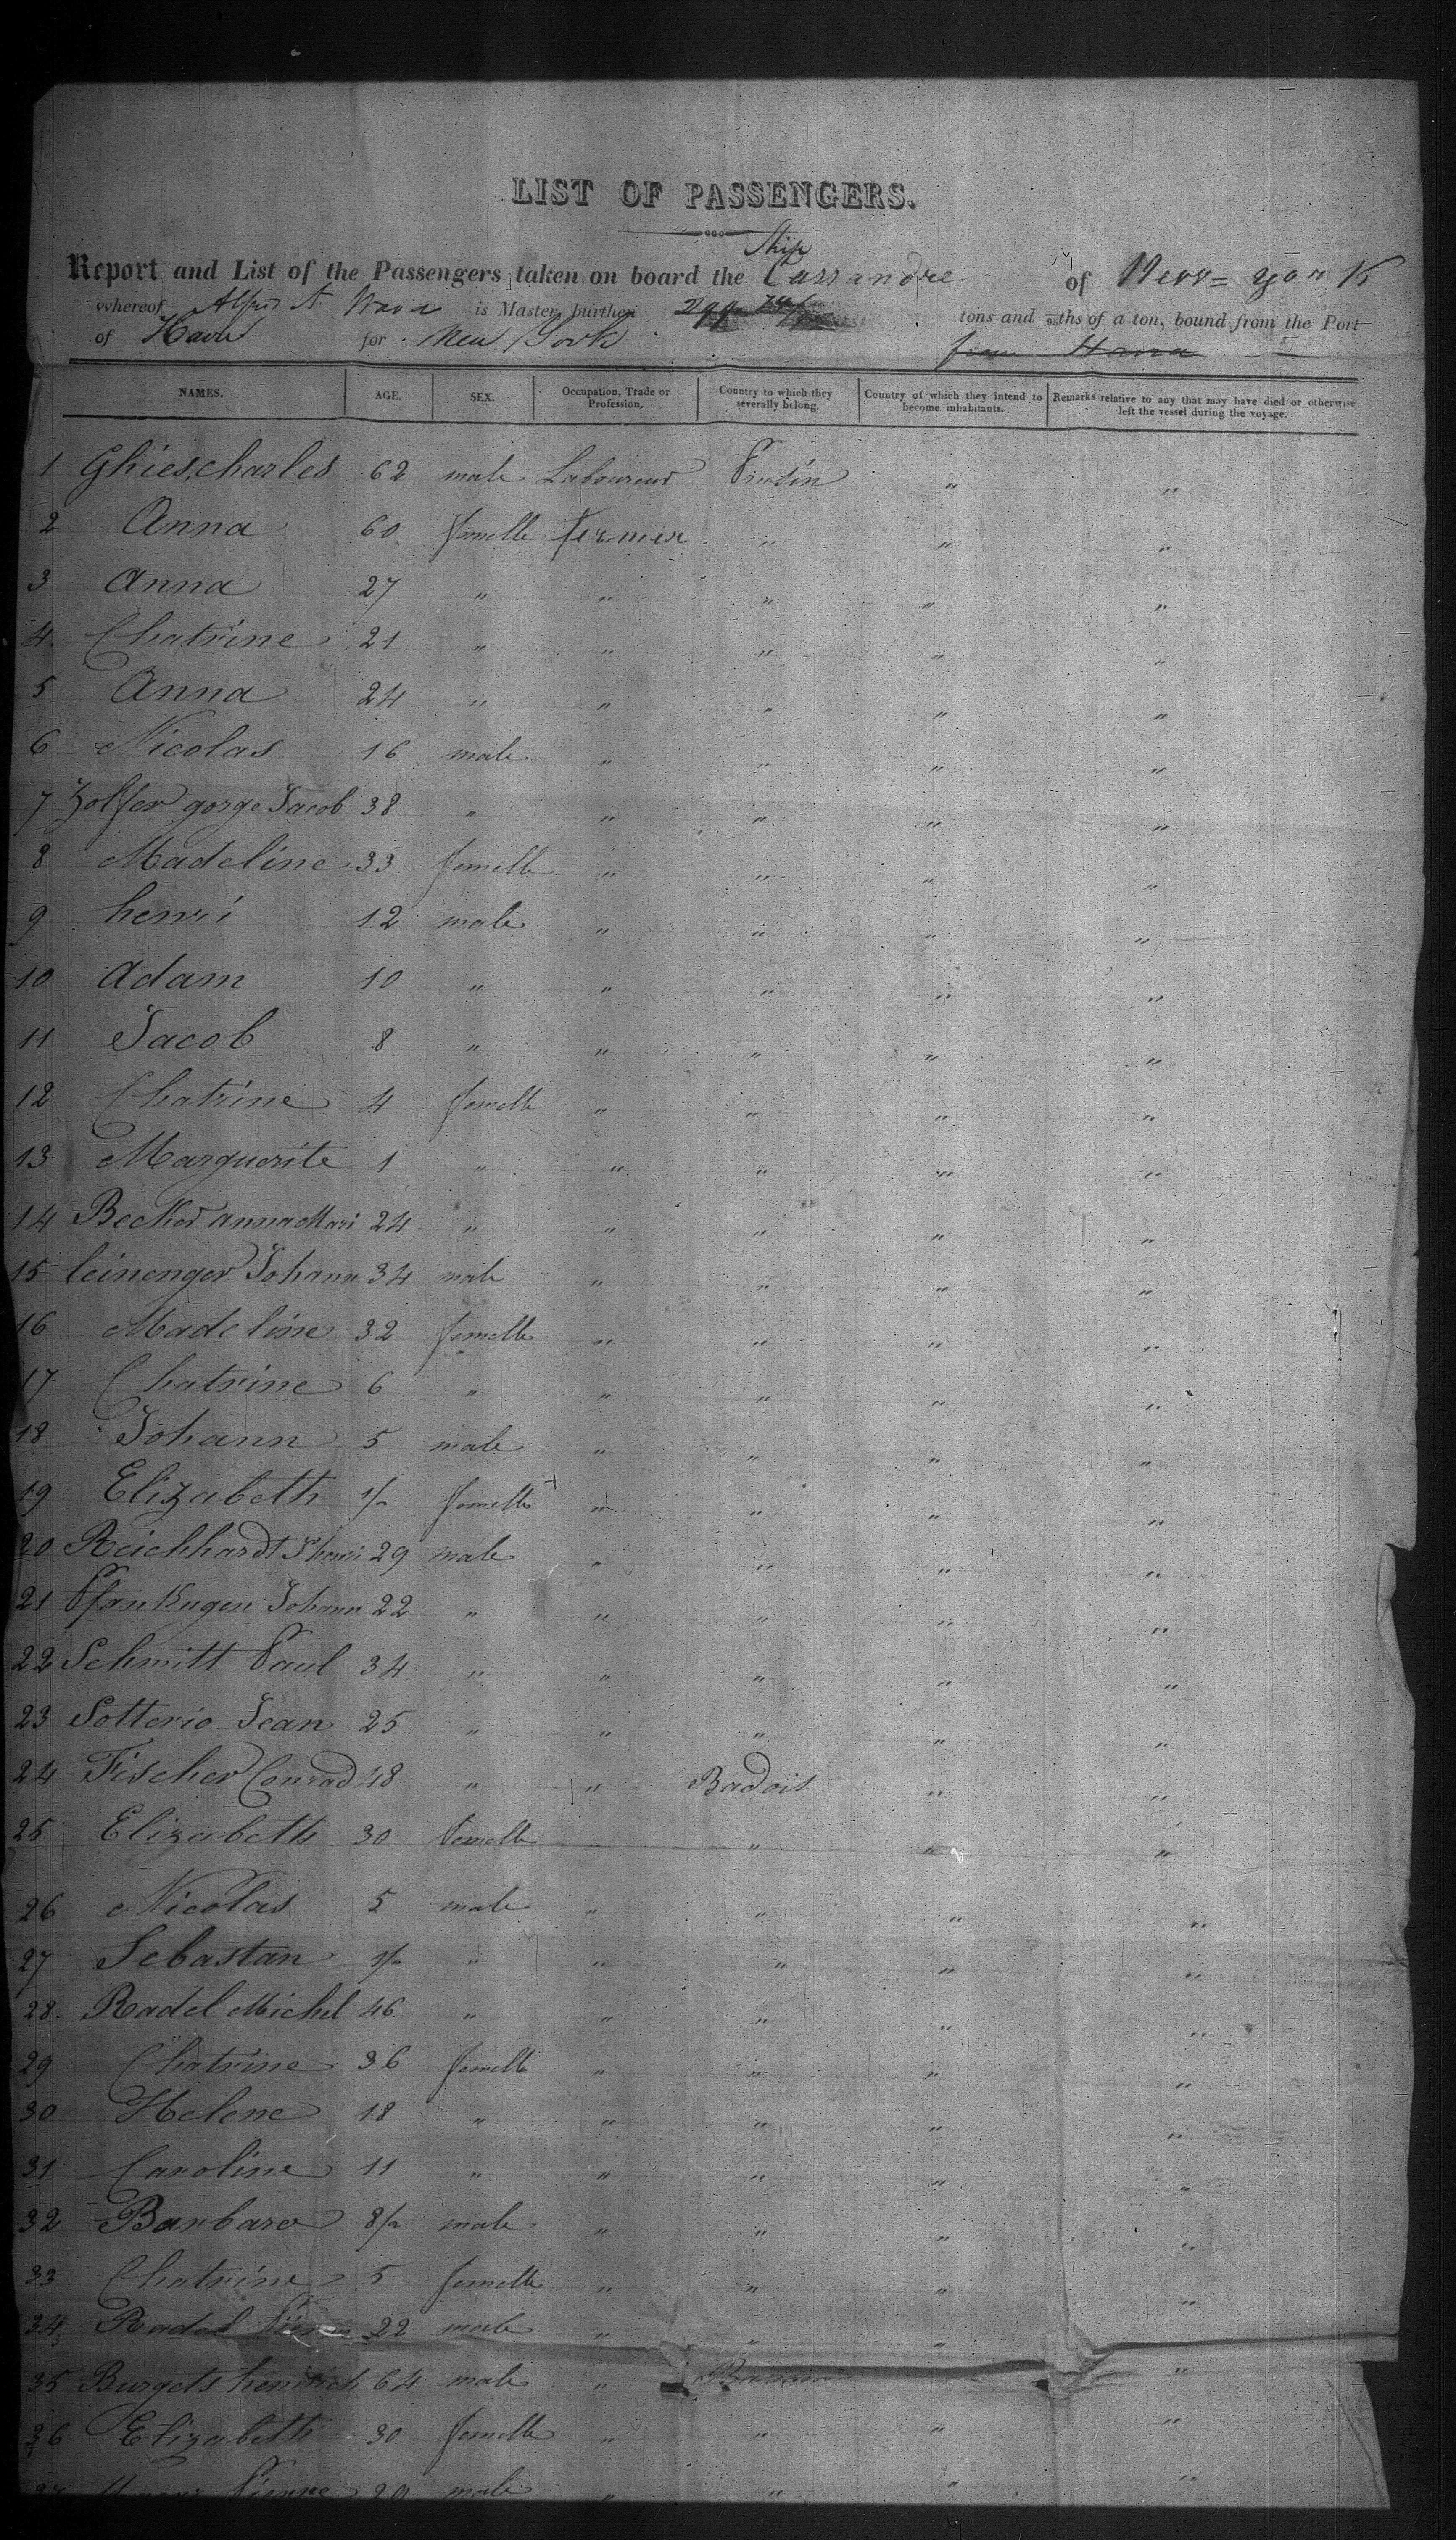 LIST OF PASSENGERS.
Ship
Report and List of the Passengers taken on board the Cassandre of New-york
whereof Alfred A. is Master, burthen tons and ths of a ton, bound from the Port
of Havre for New York from Havre
NAMES. AGE. SEX. Occupation, Trade or Profession. Country to which they severally belong. Country of which they intend to become inhabitants. Remarks relative to any that may have died or otherwise left the vessel during the voyage.
1 Ghies, charles 62 male Laboureur " "
2 Anna 60 femelle fermier " " "
3 Anna 27 " " " " "
4 Chatrine 21 " " " " "
5 Anna 24 " " " " "
6 Nicolas 16 male " " " "
7 Zolfer gorge Jacob 38 " " " " "
8 Madeline 33 femelle " " " "
9 henri 12 male " " " "
10 Adam 10 " " " " "
11 Jacob 8 " " " " "
12 Chatrine 4 femelle " " " "
13 Marguerite 1 " " " " "
14 Becker anna Mari 24 " " " " "
15 leinenger Johann 34 male " " " "
16 Madeline 32 femelle " " " "
17 Chatrine 6 " " " " "
18 Johann 5 male " " " "
19 Elizabeth femelle " " " "
20 Reichhardt 29 male " " " "
21 Pfankugen Johann 22 " " " " "
22 Schmitt Paul 34 " " " " "
23 Sotterio Jean 25 " " " " "
24 Fischer Conrad 48 " " Badois " "
25 Elizabeth 30 femelle " " " "
26 Nicolas 5 male " " " "
27 Sebastan " " " " "
28. Radel Michel 46 " " " " "
29 Chatrine 36 femelle " " " "
30 Helene 18 " " " " "
31 Caroline 11 " " " " "
32 Barbara male " " " "
33 Chatrine 5 femelle " " " "
34 Radel 22 male " " "
35 Burgets heinrich 64 male " "
36 Elizabeth 30 femelle " " " "
37 Pierre 29 male " " " "